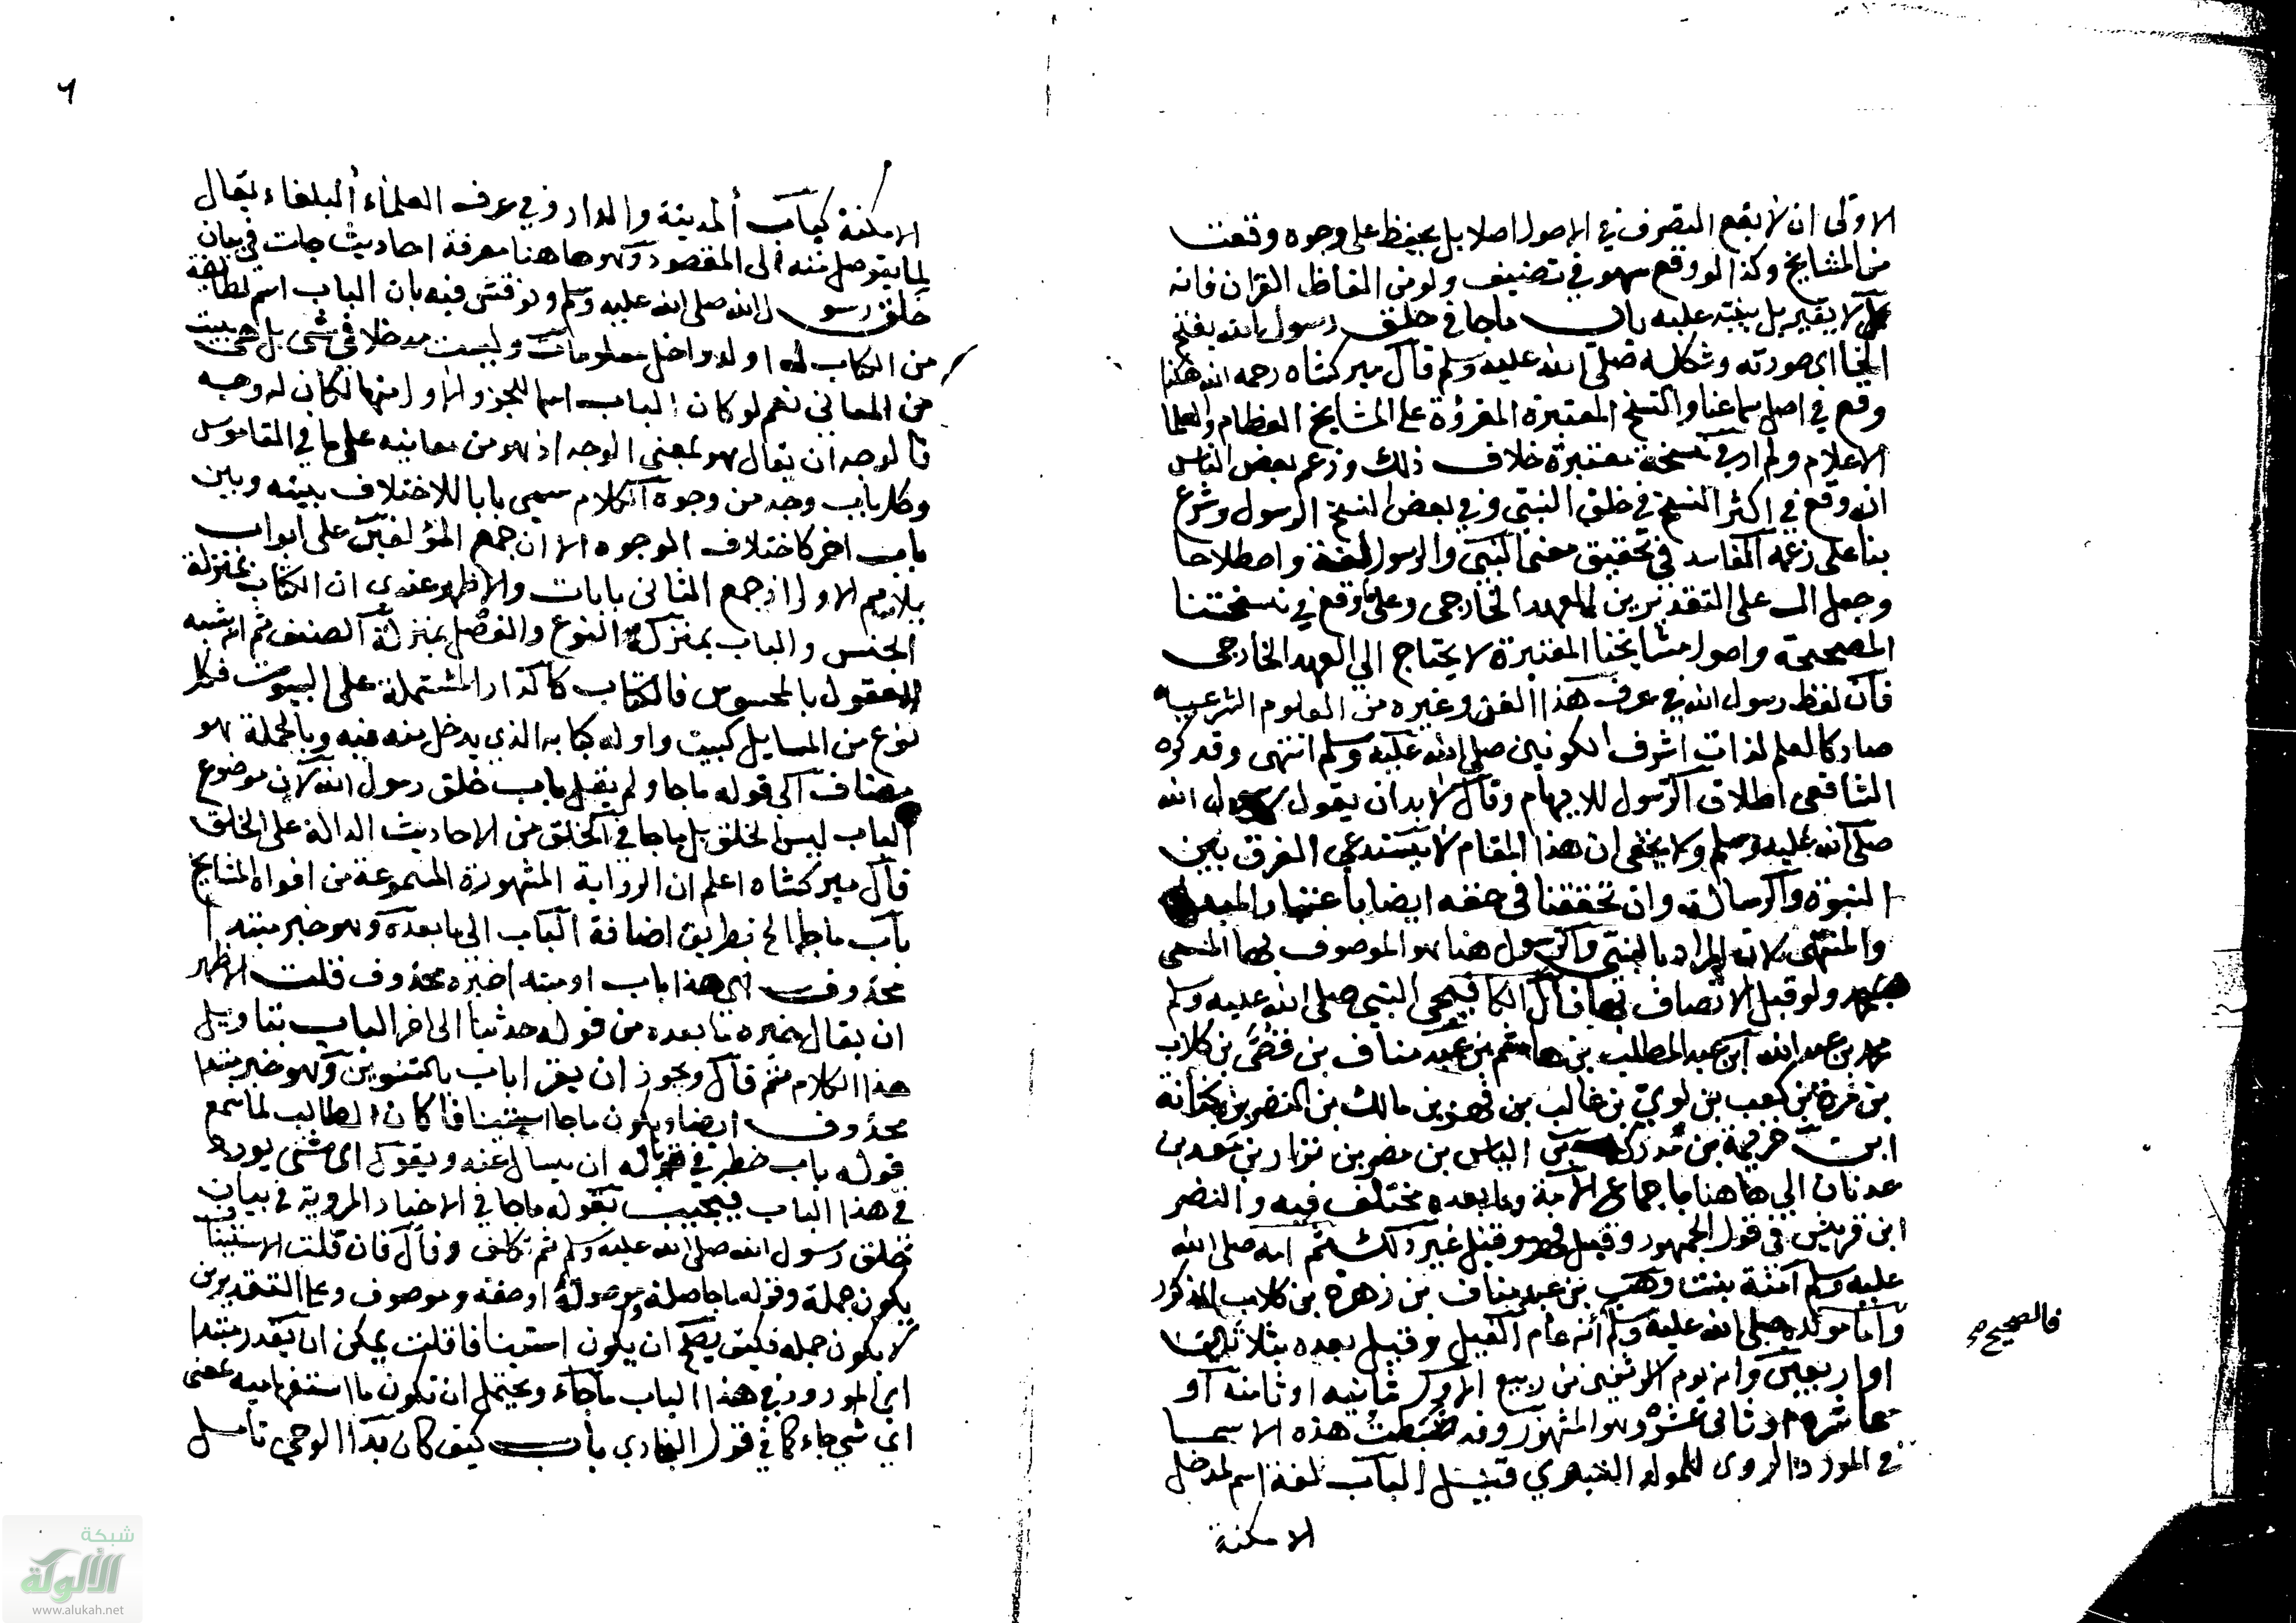 الاولى ان لا يقع التصرف في الاصول اصلا بل يحفظ على وجوه وقعت
من المشايخ وكذا لو وقع سهو في تصنيف ولو من الفاظ القران فانه
لا يغير بل ينبه عليه باب ما جا في خلق رسول الله بفتح
الخا اى صورته وشكله صلى الله عليه وسلم قال ميركشاه رحمه الله هكذا
وقع في اصل سماعنا والنسخ المعتبرة المقرؤة على المشايخ العظام والعلما
الاعلام ولم ار في نسخة معتبرة خلاف ذلك وزعم بعض الناس
انه وقع في اكثر النسخ في خلق النبي وفي بعض النسخ الرسول وشرع
بنا على زعمه الفاسد في تحقيق معنى النبي والرسول لغة واصطلاحا
وجعل ال على التقديرين للعهد الخارجى وعلى ما وقع في نسختنا
المصححة واصول مشايخنا المعتبرة لا يحتاج الى العهد الخارجى
فان لفظ رسول الله في عرف هذا الفن وغيره من العلوم الشرعية
صار كالعلم لذات اشرف الكونين صلى الله عليه وسلم انتهى وقد كره
الشافعى اطلاق الرسول للايهام وقال لا بد ان يقول رسول الله
صلى الله عليه وسلم ولا يخفى ان هذا المقام لا يستدعي الفرق بين
النبوة والرسالة وان تحققنا في حقه ايضا باعتبار المبدا
والمنتهى لان المراد بالنبي والرسول هنا هو الموصوف بهما المنعى
ولو قبل الاتصاف بهما قال الكافيجى النبي صلى الله عليه وسلم
محمد بن عبد الله ابن عبد المطلب بن هاشم بن عبد مناف بن قصى بن كلاب
بن مرة بن كعب بن لوي بن غالب بن فهر بن مالك بن النضر بن كنانة
ابن خزيمة بن مدركة بن الياس بن مضر بن نزار بن معد بن
عدنان الى هاهنا باجماع الامة وما بعده مختلف فيه والنضر
ابن قريش في قول الجمهور وقيل فهر وقيل غير ذلك ثم امه صلى الله
عليه وسلم آمنة بنت وهب بن عبد مناف بن زهرة بن كلاب المذكور
واما مولده صلى الله عليه وسلم انه عام الفيل وقيل بعده بثلاثين
او اربعين وانه يوم الاثنين من ربيع الاول ثانيه او ثامنه او
عاشره او ثانى عشره وهو المشهور وقد ضبطت هذه الاسما
في المورد الروى للمولد النبوي قيل الباب لغة اسم لمدخل
الامكنة
فالصحيح صح
٦
الامكنة كباب المدينة والدار وفي عرف العلماء البلغاء يقال
لما يتوصل منه الى المقصود وهو هاهنا معرفة احاديث جات في بيان
خلق رسول الله صلى الله عليه وسلم ونوقش فيه بان الباب اسم لطائفة
من الكتاب له اول واخر معلومات وليست مدخلا في شى بل هي بيت
من المعانى نعم لو كان الباب اسما للجزو الاول منها لكان له وجه
فالوجه ان يقال هو بمعنى الوجه اذ هو من معانيه على ما في القاموس
وكل باب وجه من وجوه الكلام سمى بابا للاختلاف بينه وبين
باب اخر كاختلاف الوجوه الا ان جمع المؤلفين على ابواب
يلايم الاول اذ جمع الثانى بابات والاظهر عندى ان الكتاب بمنزلة
الجنس والباب بمنزلة النوع والفصل بمنزلة الصنف ثم انه شبه
المعقول بالمحسوس فالكتاب كالدار المشتملة على البيوت فكل
نوع من المسايل كبيت واوله كبابه الذي يدخل منه فيه وبالجملة هو
مضاف الى قوله ما جا ولم يقل باب خلق رسول الله لان موضوع
الباب ليس الخلق بل ما جا في الخلق من الاحاديث الدالة على الخلق
قال ميركشاه اعلم ان الرواية المشهورة المسموعة من افواه المشايخ
باب ما جا الخ بطريق اضافة الباب الى ما بعده وهو خبر مبتدا
محذوف اى هذا باب او مبتدا خبره محذوف قلت الاظهر
ان يقال خبره ما بعده من قوله حدثنا الى اخر الباب بتاويل
هذا الكلام ثم قال ويجوز ان يقرا باب بالتنوين وهو خبر مبتدا
محذوف ايضا ويكون ما جا استينافا كان الطالب لما سمع
قوله باب خطر في باله ان يسال عنه ويقول اى شى يورد
في هذا الباب فيجيب بقوله ما جا في الاخبار المروية في بيان
خلق رسول الله صلى الله عليه وسلم ثم تكلف وقال فان قلت الاستيناف
يكون جملة وقوله ما جا صلة وموصولة او صفة وموصوف وعلى التقديرين
لا يكون جملة فكيف يصح ان يكون استينافا قلت يمكن ان يقدر مبتدا
اى المورود في هذا الباب ما جاء ويحتمل ان تكون ما استفهامية بمعنى
اي شي جاء كما في قول البخادي باب كيف كان بدا الوحي تأمل
شبكة
الألوكة
www.alukah.net